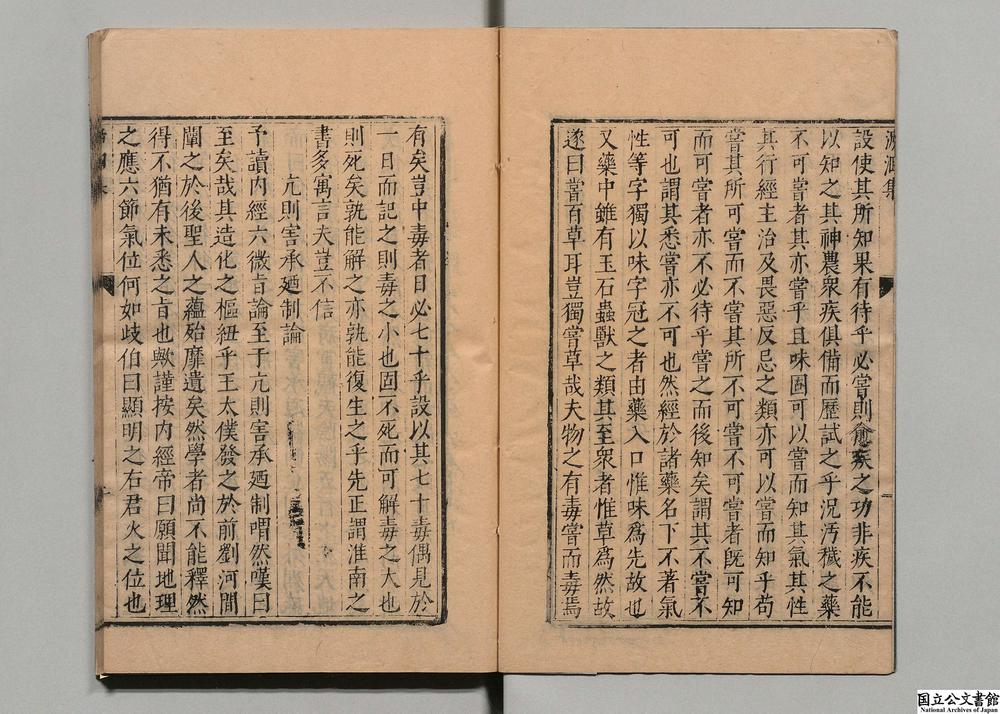 溯洄集
設使其所知果有待乎必嘗則愈疾之功非疾不能
以知之其神農衆疾俱備而歷試之乎況汚穢之藥
不可嘗者其亦嘗乎且味固可以嘗而知其氣其性
其行經主治及畏惡反忌之類亦可以嘗而知乎苟
嘗其所可嘗而不嘗其所不可嘗不可嘗者旣可知
而可嘗者亦不必待乎嘗之而後知矣謂其不嘗不
可也謂其悉嘗亦不可也然經於諸藥名下不著氣
性等字獨以味字冠之者由藥入口惟味爲先故也
又藥中雖有玉石蟲獸之類其至衆者惟草爲然故
遂曰嘗百草耳豈獨嘗草哉夫物之有毒嘗而毒焉
有矣豈中毒者日必七十乎設以其七十毒偶見於
一日而記之則毒之小也固不死而可解毒之大也
則死矣孰能解之亦孰能復生之乎先正謂淮南之
書多寓言夫豈不信
亢則害承廼制論
予讀内經六微旨論至于亢則害承廼制喟然嘆曰
至矣哉其造化之樞紐乎王太僕發之於前劉河間
闡之於後聖人之蘊殆靡遺矣然學者尚不能釋然
得不猶有未悉之旨也歟謹按内經帝曰願聞地理
之應六節氣位何如歧伯曰顯明之右君火之位也
国立公文書館
National Archives of Japan